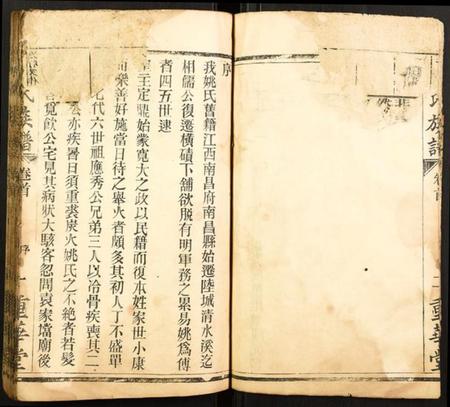 序
我姚氏舊籍江西南昌府南昌縣始遷陸城清水溪迄
相儒公復遷橫磧下舖欲脱有明軍務之累易姚爲傅
者四五世逮
王定鼎始蒙寬大之政以民籍而復本姓家世小康
而樂善好施當日待之舉火者頗多其初人丁不盛單
七代六世祖應秀公兄弟三人以冷骨疾喪其二
公亦疾暑日須重裘炭火姚氏之不絶者若髮
客覓飲公宅見其病狀大駭客忽問袁家壋廟後
氏族譜
卷首
序
一
重華堂
氏族譜
卷首
二
重華堂